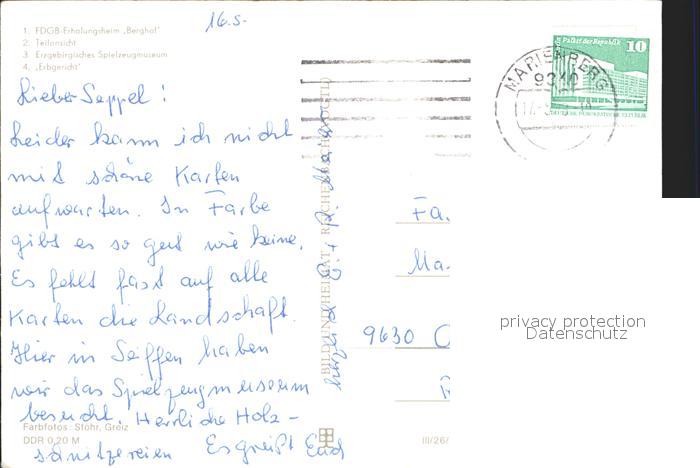 16.5.
1. FDGB-Erholungsheim „Berghof"
2. Teilansicht
3. Erzgebirgisches Spielzeugmuseum
4. „Erbgericht"
Lieber Seppel!
Leider kann ich nicht
mit schöne Karten
aufwarten. In Farbe
gibt es so gut wie keine.
Es fehlt fast auf alle
Karten die Landschaft.
Hier in Seiffen haben
wir das Spielzeugmuseum
besucht. Herrliche Holz-
schnitzereien Es grüßt Euch
Farbfotos: Stöhr, Greiz
DDR 0,20 M
BILD UND HEIMAT REICHENBACH (VOGTL)
III/26/
Palast der Republik 10
DEUTSCHE DEMOKRATISCHE REPUBLIK
MARIENBERG
9340
Fa.
Ma.
9630 C
privacy protection
Datenschutz